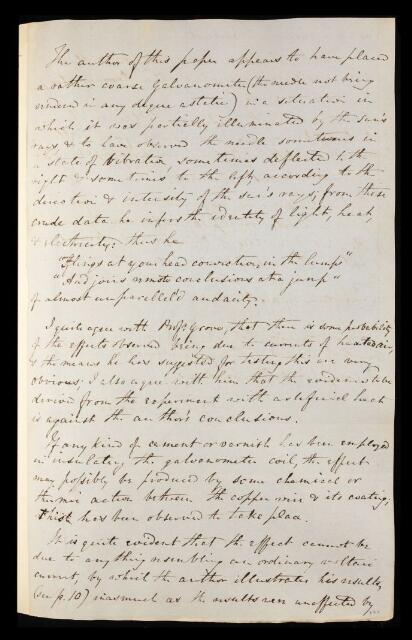 The author of this paper appears to have placed
a rather coarse Galvanometer (the needle not being
rendered in any degree astatic) in a situation in
which it was partially illuminated by the sun's
rays, & to have observed the needle sometimes in
a state of vibration sometimes deflected to the
right & sometimes to the left, according to the
direction & intensity of the sun's rays; from these
crude data he infers the identity of light, heat,
& electricity: thus he
"Flings at your head conviction, in the lump"
"And joins remote conclusions at a jump"
of almost unparallel'd audacity.
I quite agree with Profr. Grove, that there is some probability
of the effects observed being due to currents of heated air,
& the means he has suggested for testing this are very
obvious; I also agree with him that the evidence to be
derived from the experiment with artificial heat
is against the author's conclusions.
If any kind of cement or varnish has been employed
in insulating the galvanometer coil, the effect
may possibly be produced by some chemical or
thermic action between the copper wire & its coating;
this has been observed to take place.
It is quite evident that the effect cannot be
due to any thing resembling an ordinary voltaic
current, by which the author illustrates his results,
(see p. 10) inasmuch as the results were unaffected by